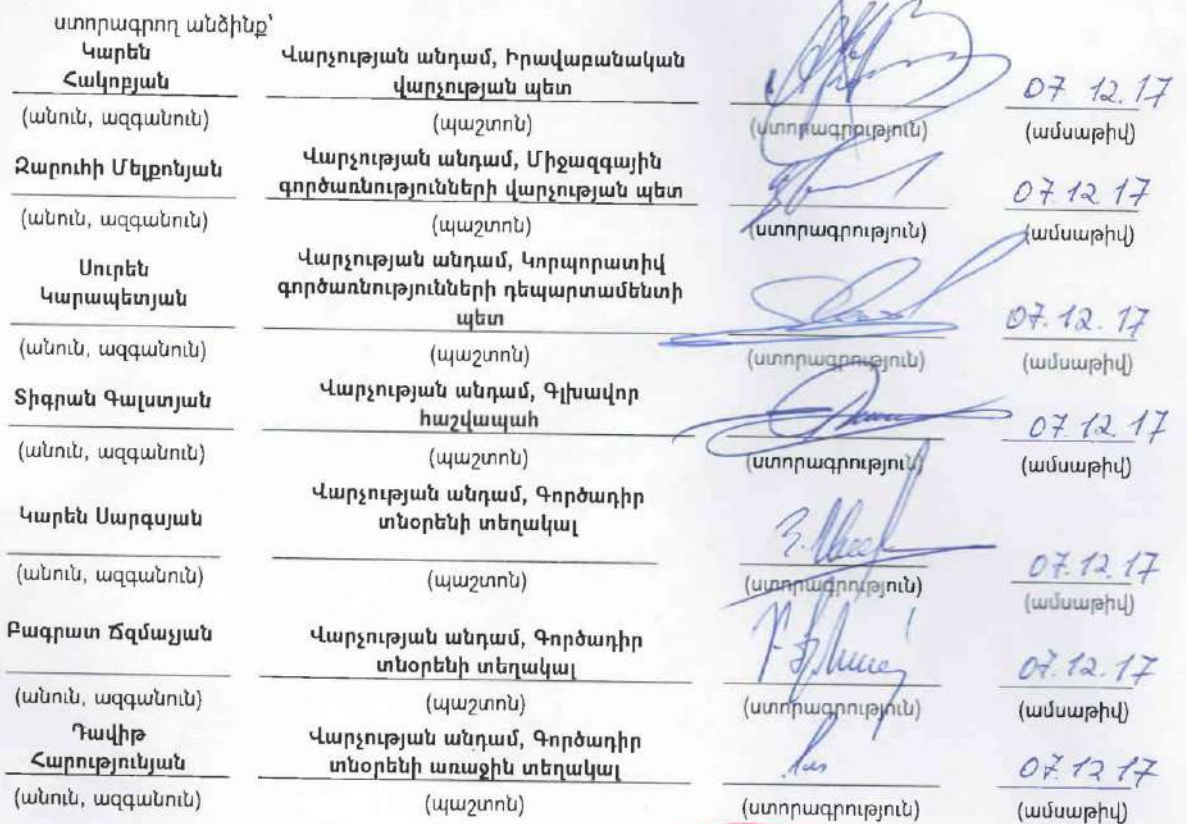 ստորագրող անձինք՝
Կարեն Հակոբյան
Վարչության անդամ, Իրավաբանական վարչության պետ
07.12.17
(անուն, ազգանուն) (պաշտոն) (ստորագրություն) (ամսաթիվ)
Զարուհի Մելքոնյան
Վարչության անդամ, Միջազգային գործառնությունների վարչության պետ
07.12.17
(անուն, ազգանուն) (պաշտոն) (ստորագրություն) (ամսաթիվ)
Սուրեն Կարապետյան
Վարչության անդամ, Կորպորատիվ գործառնությունների դեպարտամենտի պետ
07.12.17
(անուն, ազգանուն) (պաշտոն) (ստորագրություն) (ամսաթիվ)
Տիգրան Գալստյան
Վարչության անդամ, Գլխավոր հաշվապահ
07.12.17
(անուն, ազգանուն) (պաշտոն) (ստորագրություն) (ամսաթիվ)
Կարեն Սարգսյան
Վարչության անդամ, Գործադիր տնօրենի տեղակալ
07.12.17
(անուն, ազգանուն) (պաշտոն) (ստորագրություն) (ամսաթիվ)
Բագրատ Ճզմաչյան
Վարչության անդամ, Գործադիր տնօրենի տեղակալ
07.12.17
(անուն, ազգանուն) (պաշտոն) (ստորագրություն) (ամսաթիվ)
Դավիթ Հարությունյան
Վարչության անդամ, Գործադիր տնօրենի առաջին տեղակալ
07.12.17
(անուն, ազգանուն) (պաշտոն) (ստորագրություն) (ամսաթիվ)